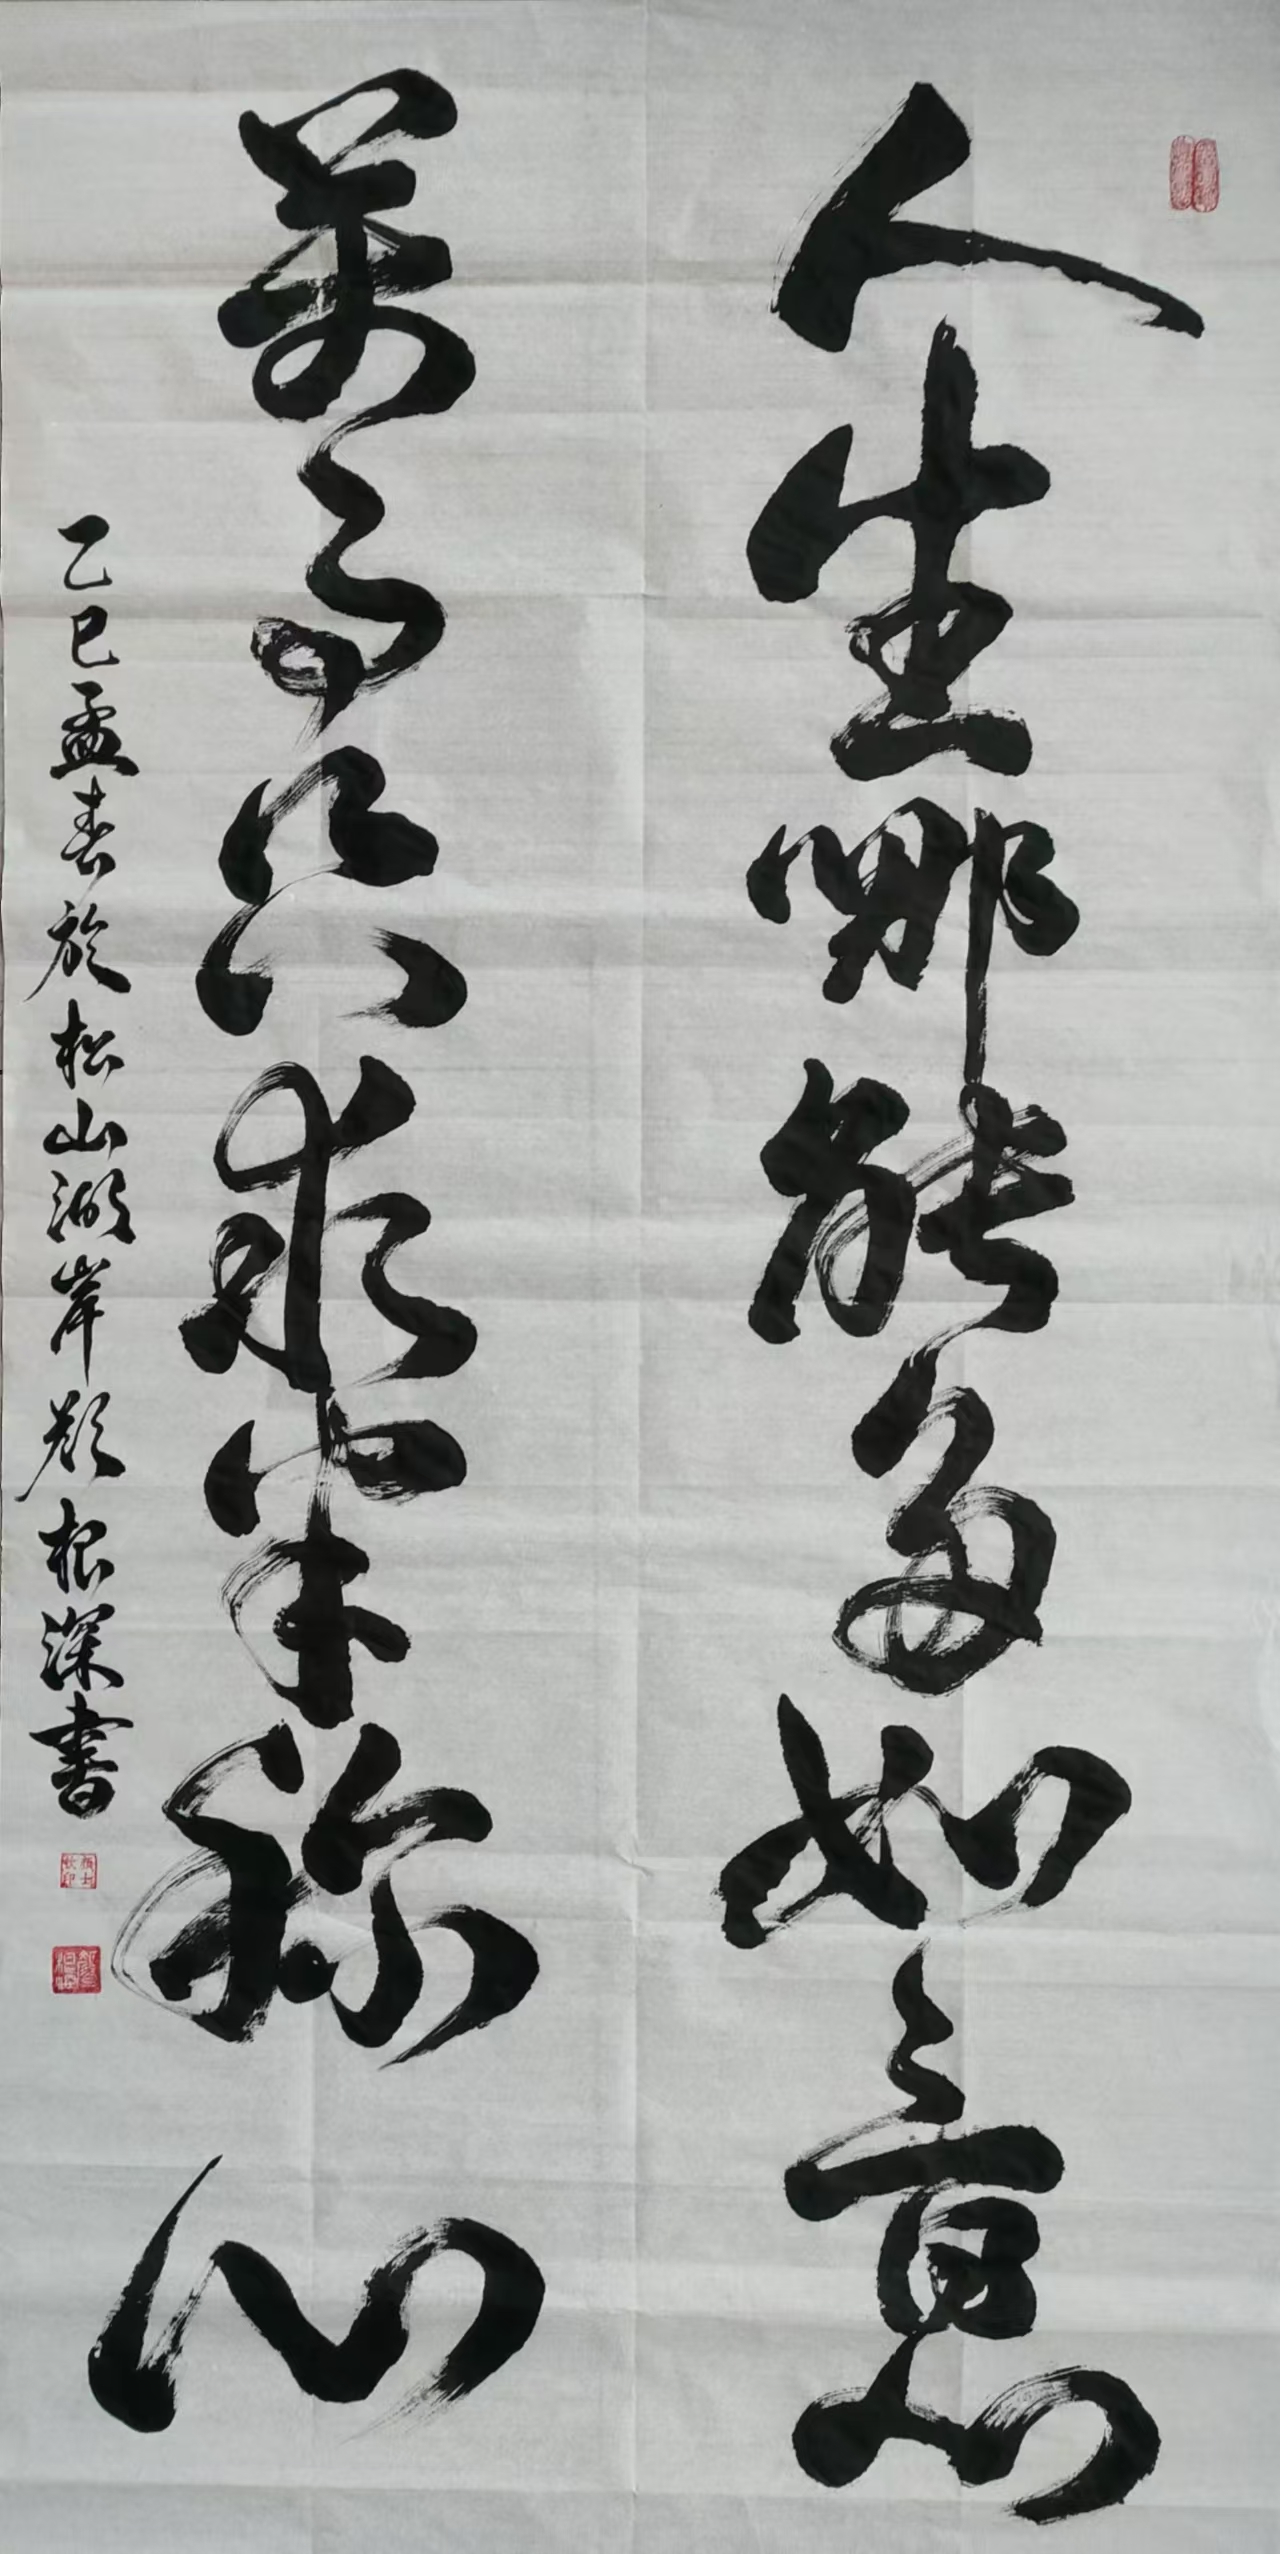 人生哪能多如意
萬事只求半称心
乙巳孟春於松山湖岸顏根深書